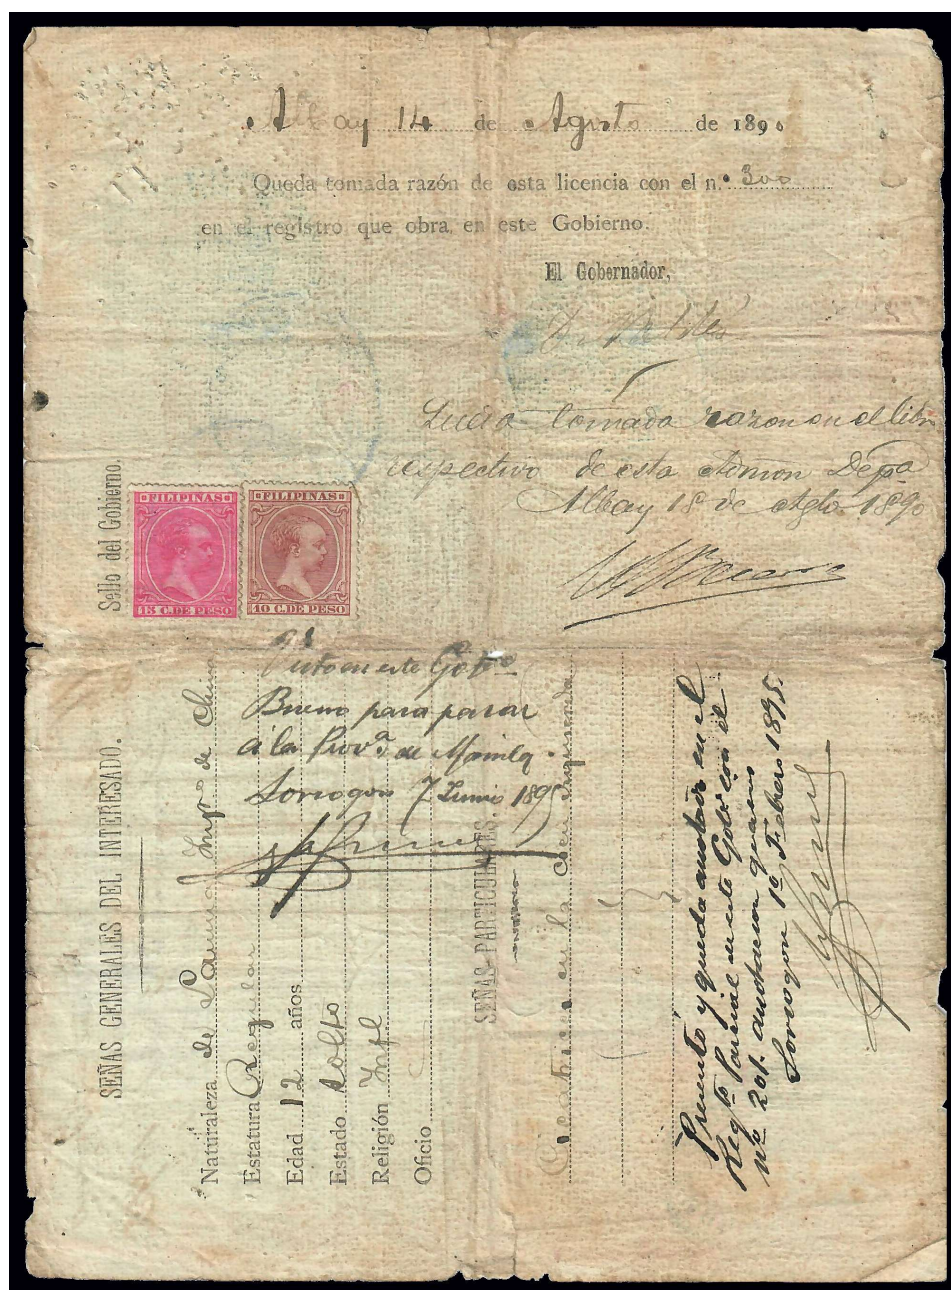 Albay 14 de Agosto de 1890
Queda tomada razón de esta licencia con el n.º 300
en el registro que obra en este Gobierno.
El Gobernador,
Queda tomada razon en el libro
respectivo de esta Admon De
Albay 18 de Agto 1890
Sello del Gobierno.
FILIPINAS
15 C. DE PESO
FILIPINAS
10 C. DE PESO
Visto en este Gobno
Bueno para pasar
á la Provª de Manila.
Sorsogon 7 Junio 1895
SEÑAS GENERALES DEL INTERESADO.
Naturaleza de Impº de China
Estatura Regular
Edad 12 años
Estado solto
Religión Infl
Oficio
SEÑAS PARTICULARES.
Cicatrices en la izquierda
Presento y queda anotado en el
Regto Parcial de este Gobº con el
nº 201. anotacion
Sorsogon 1º Febrero 1895.